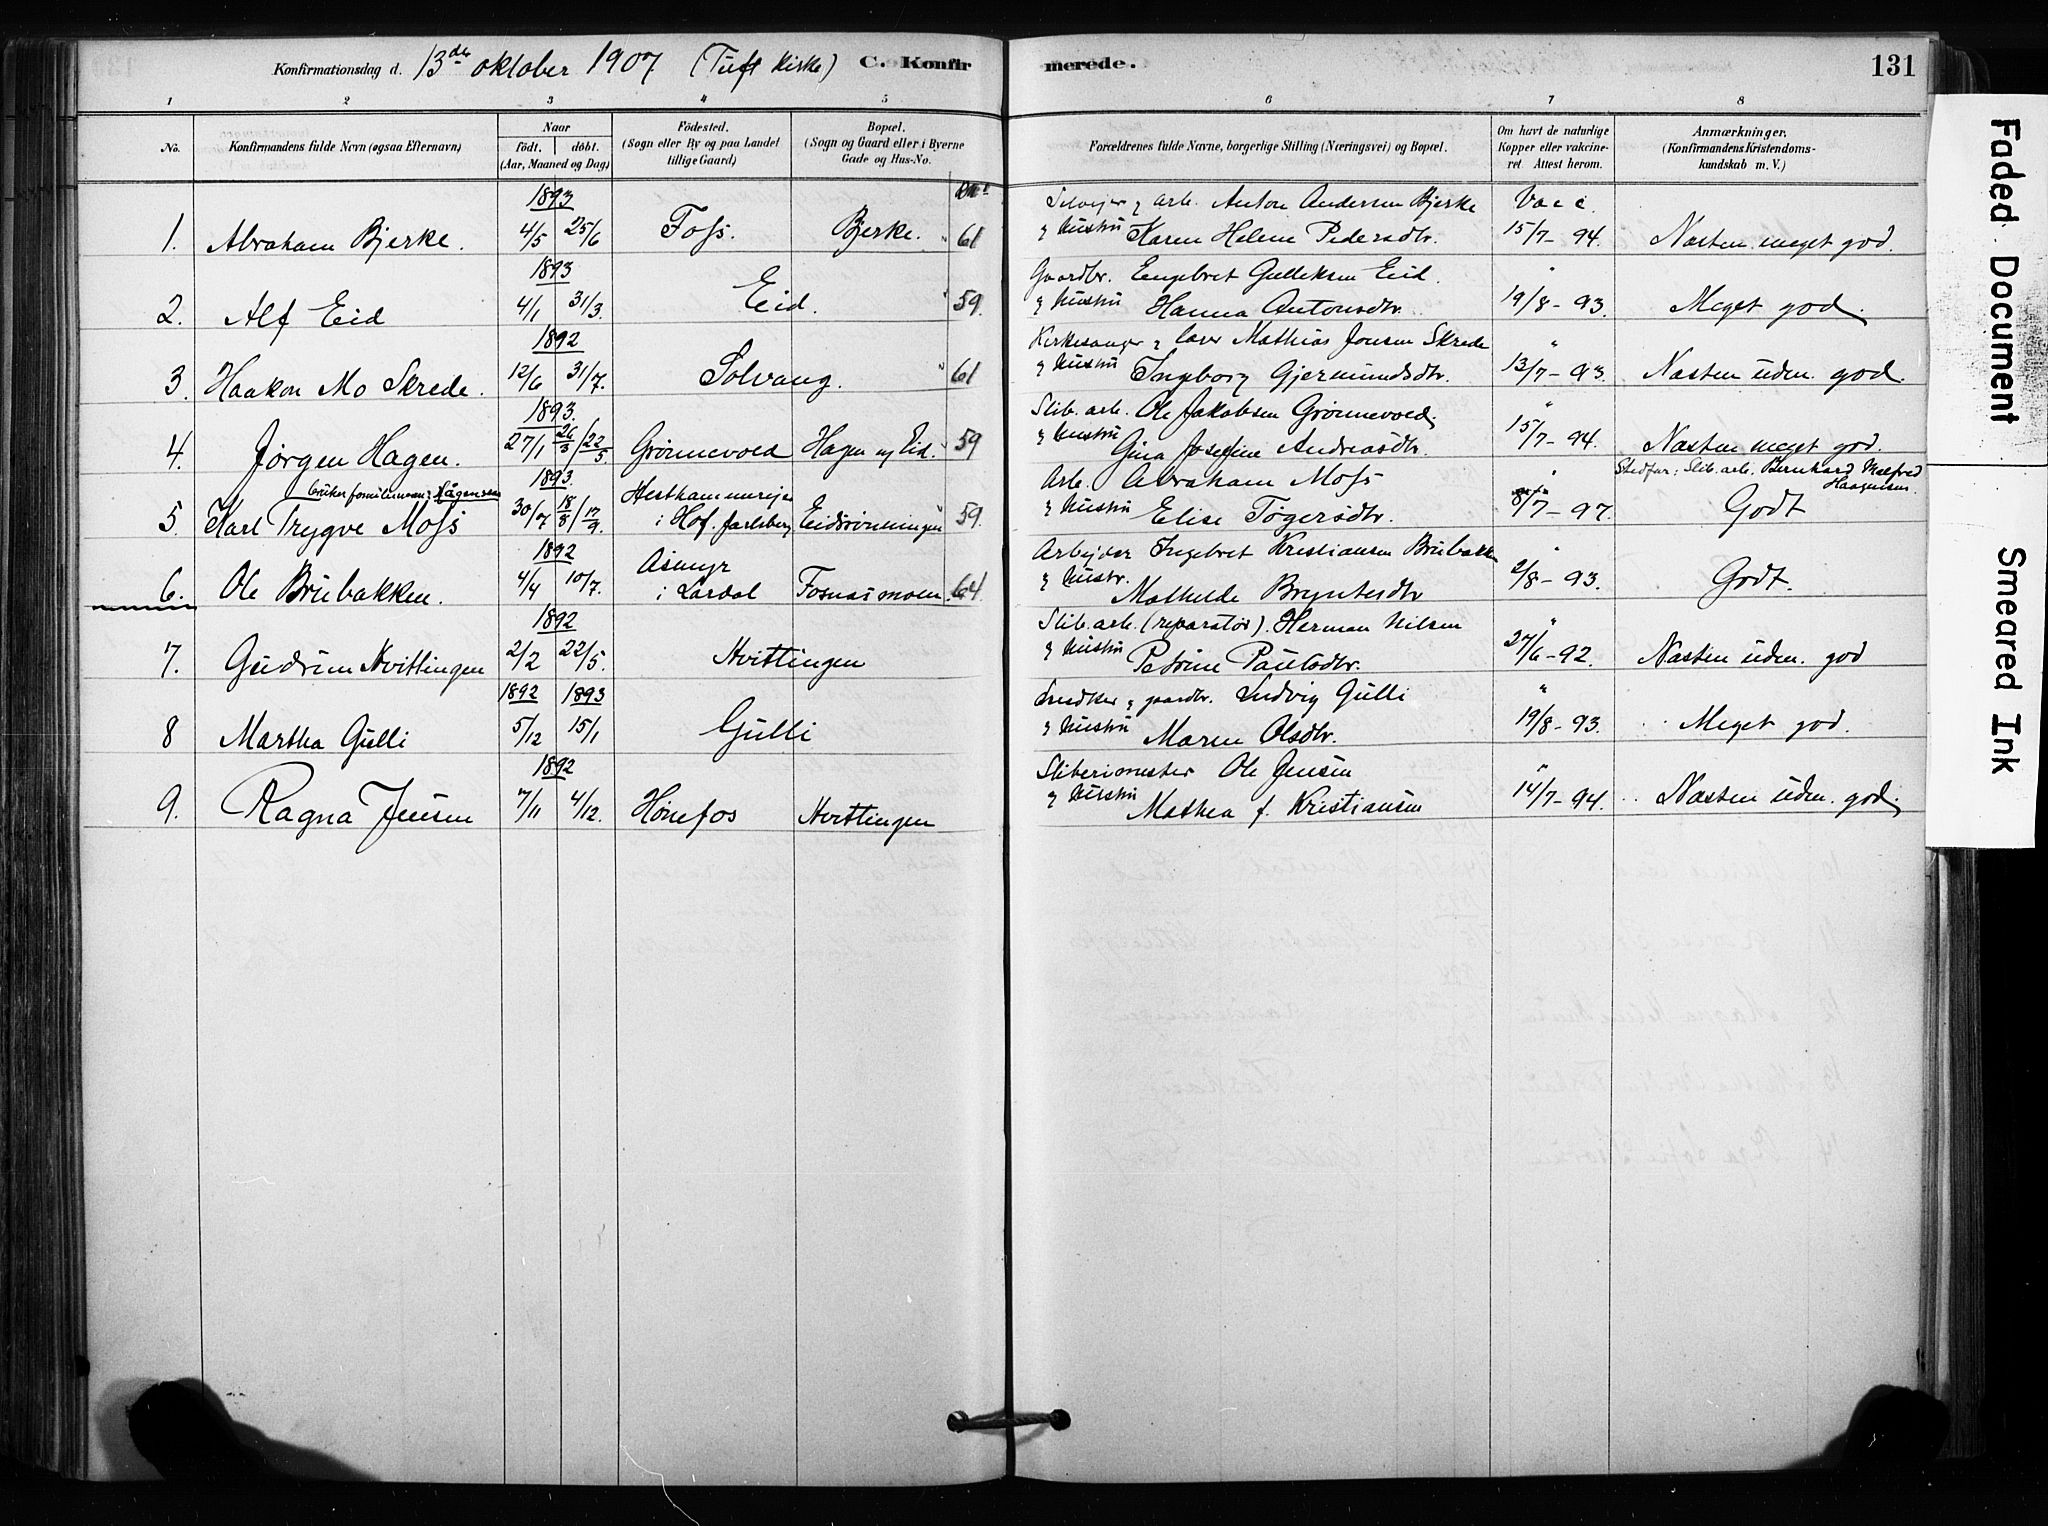 Konfirmationsdag d. 13de oktober 1907 (Tuft Kirke) C. Konfirmerede. 131
1 2 3 4 5 6 7 8
No.
Konfirmandens fulde Navn (ogsaa Efternavn)
Naar
födt. döbt.
(Aar, Maaned og Dag)
Födested.
(Sogn eller By og paa Landet
tillige Gaard)
Bopæl.
(Sogn og Gaard eller i Byerne
Gade og Hus-No.
Forældrenes fulde Navne, borgerlige Stilling (Næringsvei) og Bopæl.
Om havt de naturlige
Kopper eller vakcine-
ret. Attest herom.
Anmærkninger.
(Konfirmandens Kristendoms-
kundskab m. V.)
1893 Selvejer & arb. Anton Andersen Bjerke Vacc.
1. Abraham Bjerke. 4/5 25/6 Foss. Bjerke. 61 & hustru Karen Helene Pedersdtr. 15/7-94. Næsten meget god.
1893 Gaardbr. Engebret Gulleksen Eid. "
2. Alf Eid 4/1 31/3. Eid. 59. & hustru Hanna Antonsdtr. 19/8-93. Meget god.
1892 Kirkesanger & lærer Mathias Jonsen Skrede "
3. Haakon Mo Skrede. 12/6 31/7. Solvang. 61 & hustru Ingeborg Gjermundsdtr. 13/7-93. Næsten uden. god.
1893. Slib. arb. Ole Jakobsen Grönnevold. "
4. Jörgen Hagen. 27/1 26/3 / 22/5. Grönnevold Hagen u/ Eid. 59 & hustru Gina Josefine Andreasdtr. 15/7-94. Næsten meget god.
bruker familienavn: Hågensen 1893. Hesthammereje Arb. Abraham Moss " Stedfar: Slib. arb. Bernhard Malfred Haagensen.
5. Karl Trygve Moss 30/7 18/8 / 17/9. i Hof. Jarlsberg Eidsrönningen 59. & hustru Elise Tögersdtr. 8/7-97. Godt
1892 Åsmyr Arbejder Ingebret Kristiansen Brubakken "
6. Ole Brubakken. 4/4 10/7. i Lardal Fosnæsmoen. 64. & hustr. Mathilde Bryntesdtr 2/8-93. Godt.
1892 Slib. arb. (reparatör). Herman Nilsen "
7. Gudrun Hvittingen 2/2 22/5. Hvittingen & hustru Petrine Paulsdtr. 27/6-92. Næsten uden. god
1892 1893 Snedker & gaardbr. Ludvig Gulli "
8 Martha Gulli 5/12 15/1 Gulli & hustru Maren Olsdtr. 19/8-93. Meget god.
1892 Sliberimester Ole Jensen "
9. Ragna Jensen 7/11 4/12. Hönefos Hvittingen & hustru Mathea f. Kristiansen 14/7-94. Næsten uden. god.
Faded Document
Smeared Ink